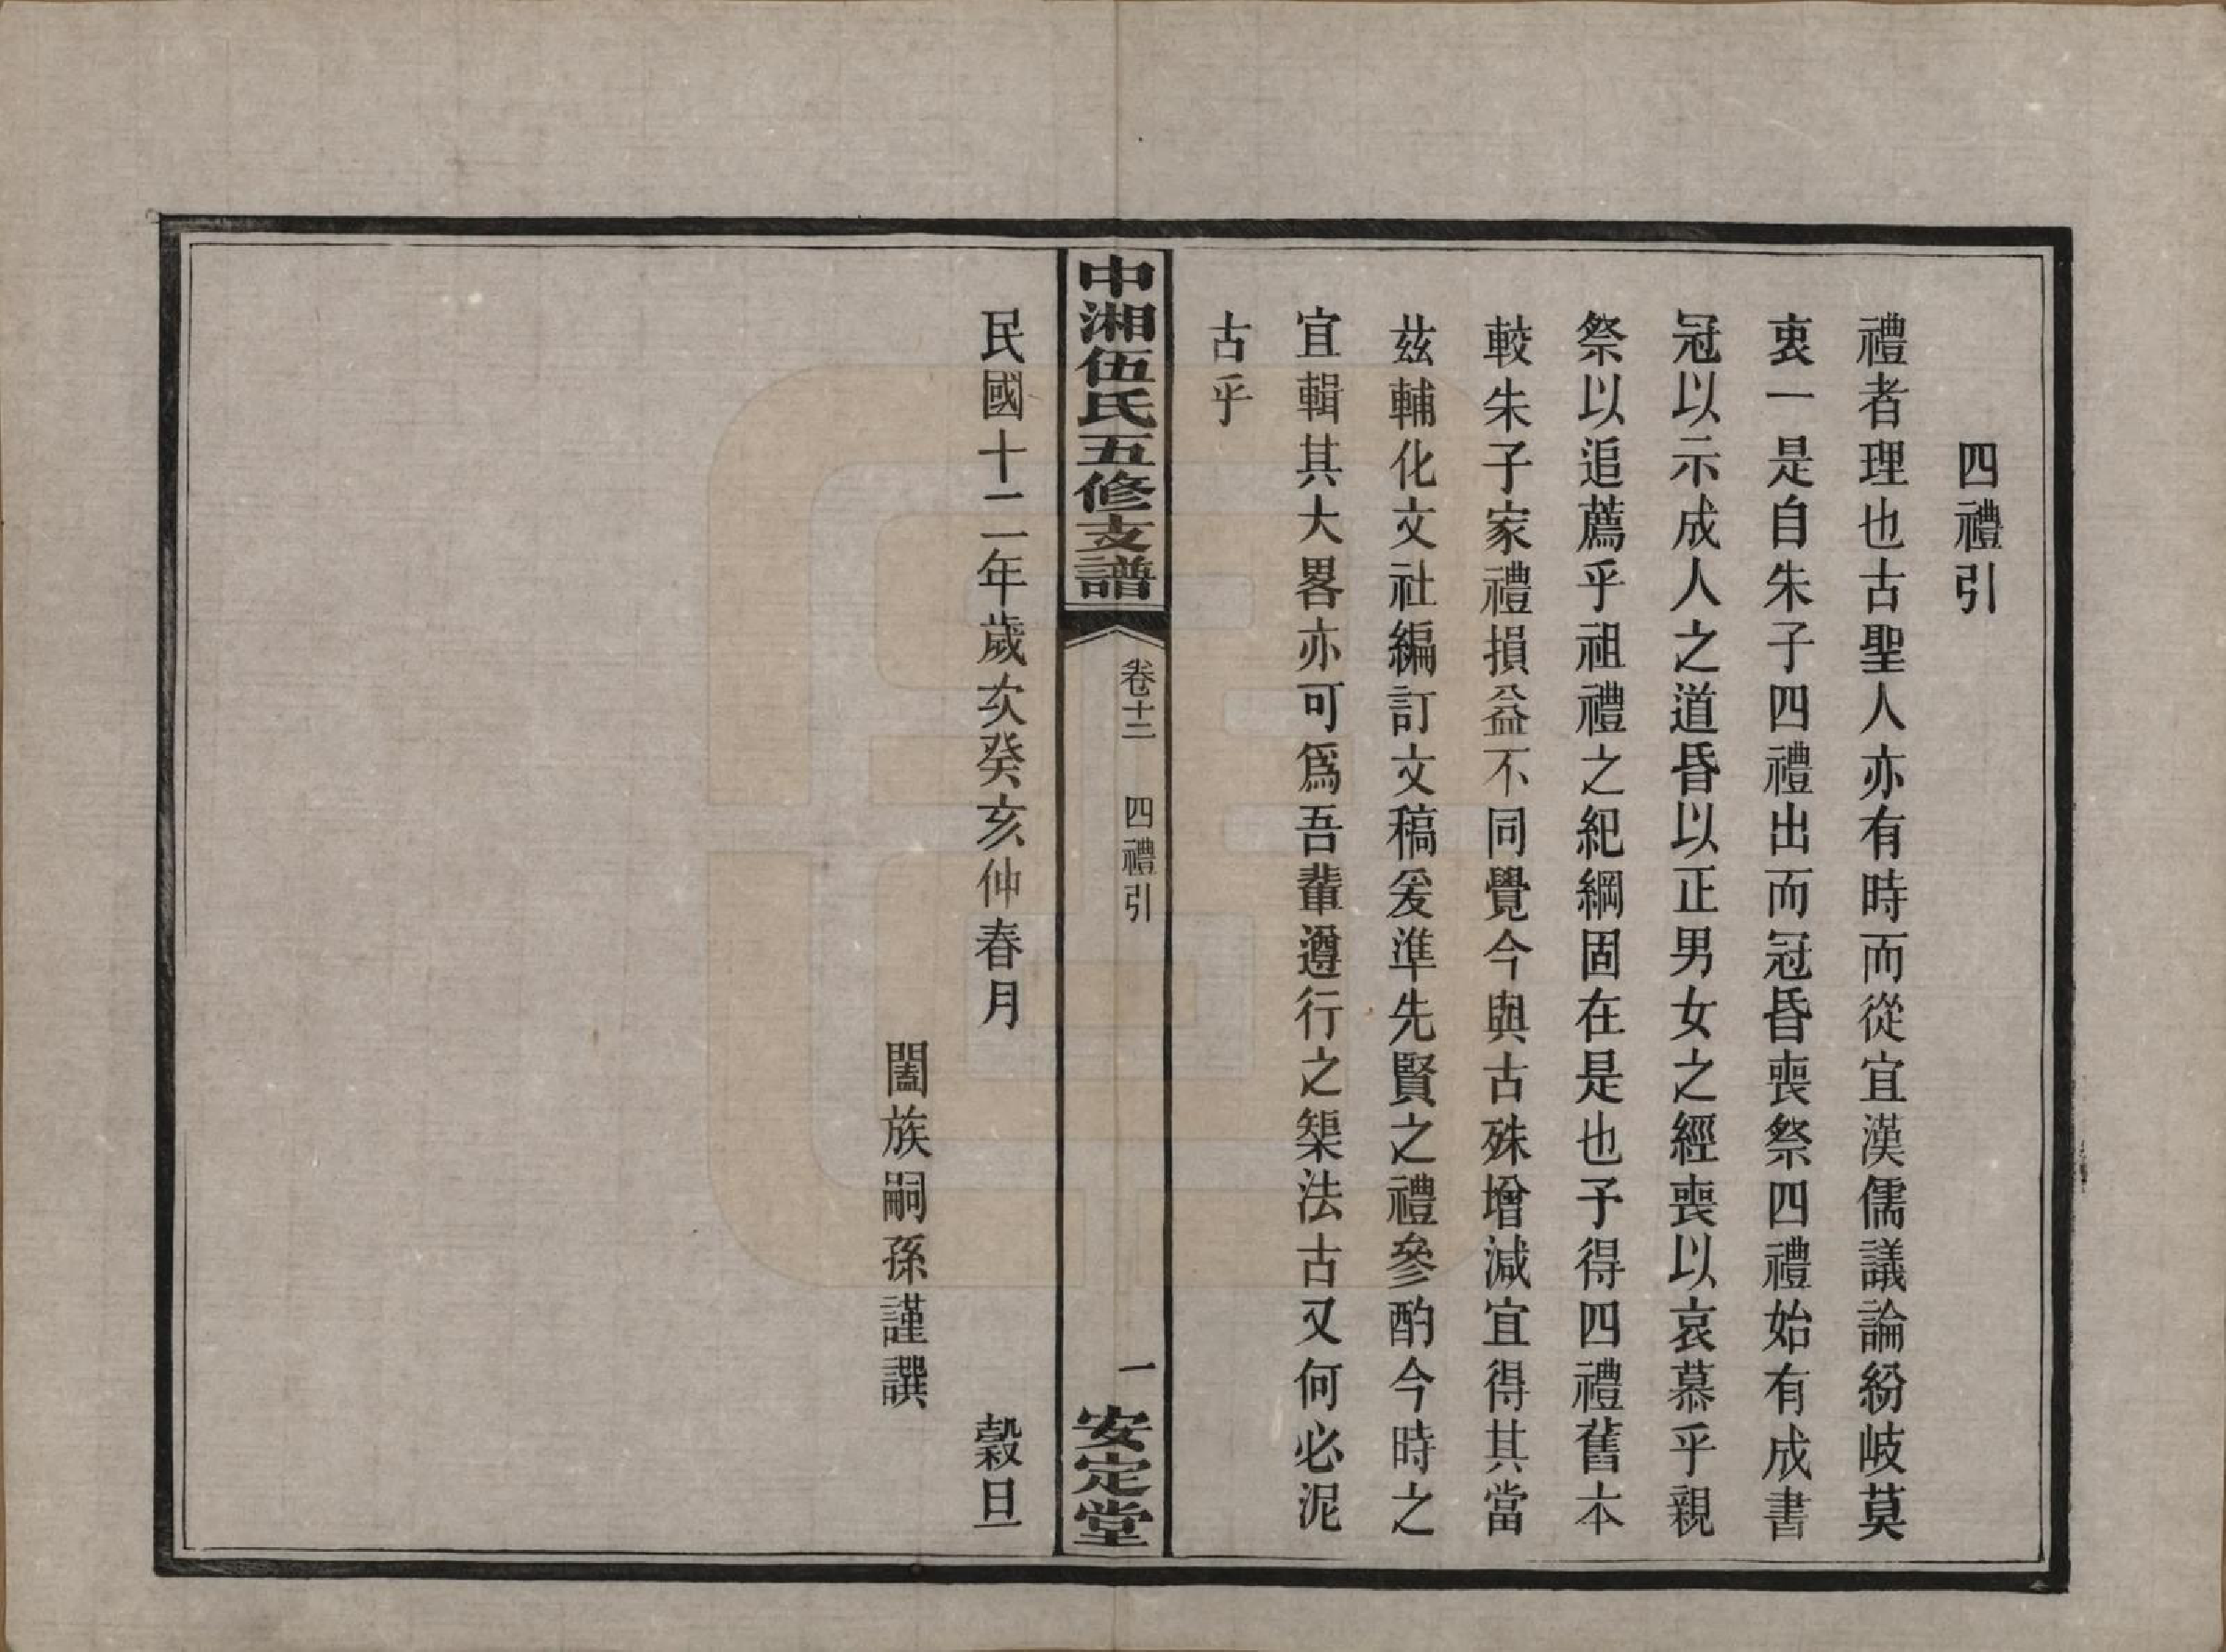 四禮引
禮者理也古聖人亦有時而從宜漢儒議論紛岐莫
衷一是自朱子四禮出而冠昏喪祭四禮始有成書
冠以示成人之道昏以正男女之經喪以哀慕乎親
祭以追薦乎祖禮之紀綱固在是也予得四禮舊本
較朱子家禮損益不同覺今與古殊增減宜得其當
茲輔化文社編訂文稿爰準先賢之禮參酌今時之
宜輯其大畧亦可爲吾輩遵行之榘法古又何必泥
古乎
中湘伍氏五修支譜
卷十二 四禮引
一
安定堂
民國十二年歲次癸亥仲春月 穀旦
闔族嗣孫謹譔